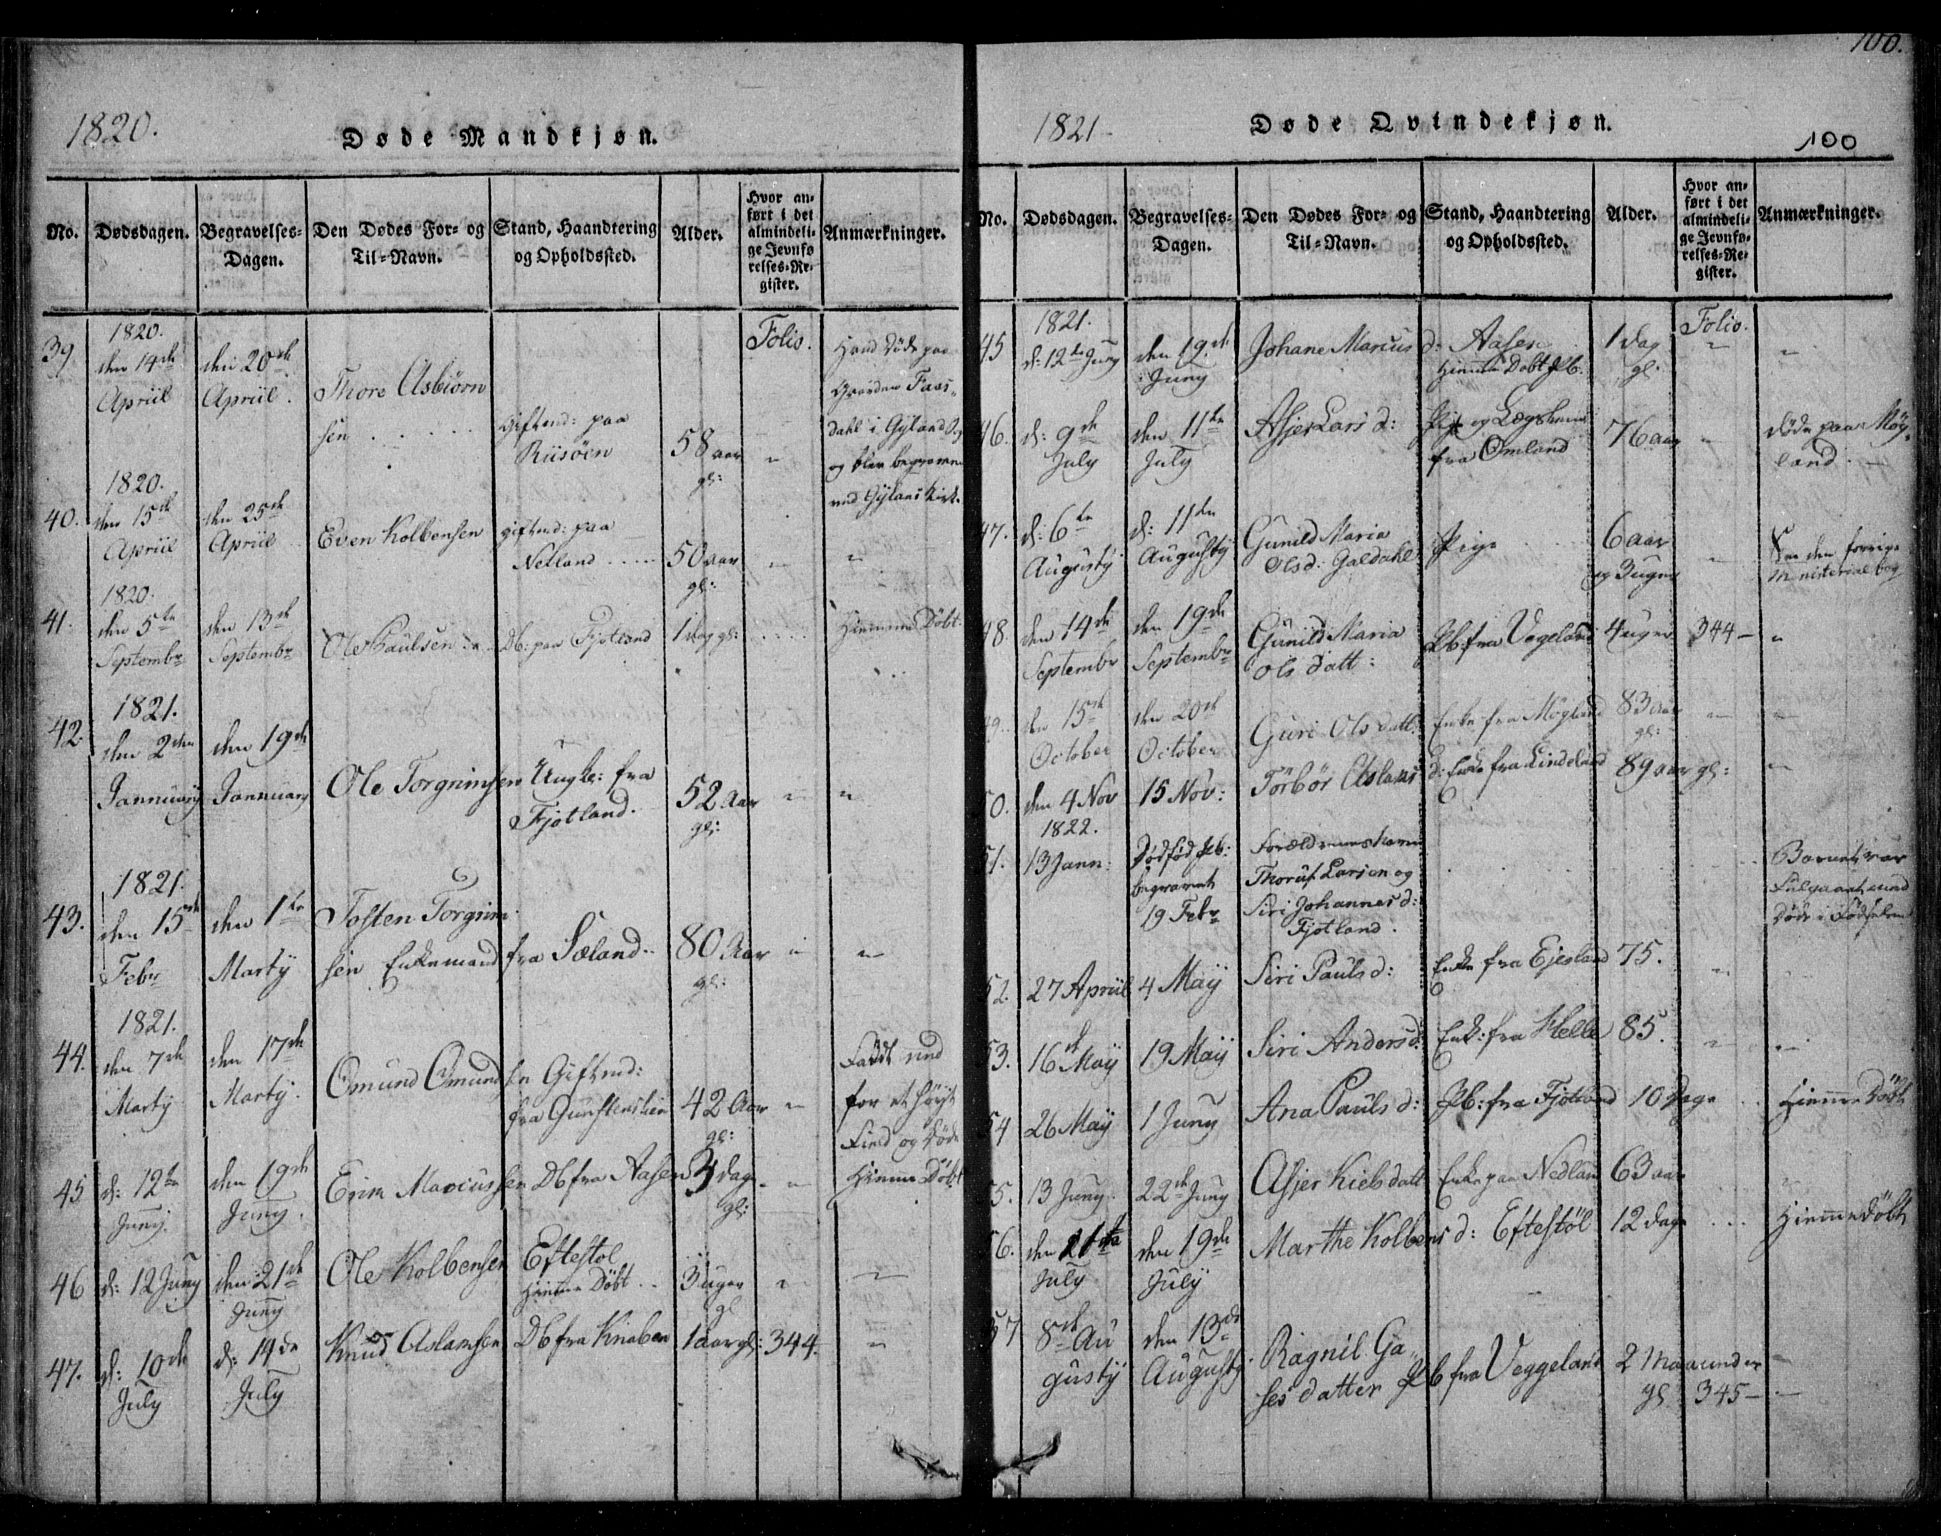 1820.
Døde Mandkjøn.
No.
Dødsdagen.
Begravelses-
Dagen.
Den Dødes For- og
Til-Navn.
Stand, Haandtering
og Opholdssted.
Alder.
Hvor an-
ført i det
almindeli-
ge Jevnfø
relses-Re-
gister.
Anmærkninger.
Folio.
39
1820.
den 14de
Apriil
den 20de
Apriil.
Thore Asbiørn
sen
Giftmd: paa
Riisöen
58 aar
gl:
Hand Døde paa
Gaarden Faas-
dahl i Gyland
og blev begraven
ved Gylans Kirke
40.
1820.
den 15de
Apriil
den 25de
Apriil
Even Kolbensen
giftmd: paa
Netland
50 aar
gl:
41.
1820.
den 5te
Septembr
den 13de
Septembr
Ole Paulsen
Db: paa Fjotland
1 dag gl:
Hiemme Døbt
42.
1821.
den 2den
Jannuary
den 19de
Jannuary
Ole Torgrimsen
Ungk: fra
Fjotland.
52 Aar
gl:
43.
1821.
den 15de
Febr
den 1te
Marty
Tosten Torgrim
sen Enkemand
fra Sæland
80 Aar
gl:
44.
1821.
den 7de
Marty
den 17de
Marty.
Omund Omund
sen Giftmd:
fra Gunstensteen
42 Aar
gl:
Faldt ud
for et höyt
Field og Döde
45
d: 12te
Juny.
den 19de
Juny.
Erik Marcussen
Db fra Aasen
3 dage
gl:
Hiemme Døbt
46
d: 12 Juny
den 21de
Juny
Ole Kolbensen
Eftestøl
Hiemme Döbt
3 uger
gl
47.
d: 10de
July
d: 14de
July
Knud Aslamsen
Db fra Knaben
1 aar gl:
344.
100.
1821
Døde Qvindekjøn.
100
No.
Dødsdagen.
Begravelses-
Dagen.
Den Dødes For- og
Til-Navn.
Stand, Haandtering
og Opholdssted.
Alder.
Hvor an-
ført i det
almindeli-
ge Jevnfø-
relses-Re-
gister.
Anmærkninger.
Folio.
45
1821.
d: 12te Juny
den 19de
Juny
Johane Marcus d:
Aasen
Hiemme Døbt Pb.
1 dag
gl.
46.
d: 9de
July
den 11te
July
Asjer Lars d:
Pige og Lægslem
fra Omland
76 aar
døde paa Møy-
land.
47.
d: 6te
Augusty
d: 11te
Augusty
Gunild Maria
Olsd: Galdahl
Pige
6 aar
og 3 uger
See den forrige
Ministerial bog
48
den 14de
Septembr
den 19de
Septembr
Gunild Maria
Ols datt:
Pb fra Vegeland
4 uger
344
49.
den 15de
October
den 20de
October
Guri Olsdatt:
Enke fra Møgland
83 aar
gl:
50.
den 4 Nov
15 Nov:
Törbör Aslaks d:
Enke fra Lindeland
89 aar gl:
51.
1822.
13 Jann:
Dødfød Pb:
begravet
19 Febr
Forældrene
Thoruf Larsen og
Siri Johannes d:
Fjotland.
Barnet var
fulgaaet med
Döde i Fødselen
52.
27 Apriil
4 Maÿ
Siri Pauls d:
Enke fra Ejesland
75.
53.
16de Maÿ
19 Maÿ
Siri Anders d:
Enk: fra Helle
85.
54
26 Maÿ
1 Juny
Ana Pauls d:
Pb: fra Fjotland
10 Dage
Hiemme Döbt
55.
13 Juny.
22de Juny
Asjer Kiels datt
Enke paa Nedland
63 aar
56.
den
July
den 19de
July
Marthe Kolbens d:
Eftestöl
12 dage
Hiemmedöbt
57
8de Au
gusty
den 13de
Augusty.
Ragnil Ga-
ses datter
Pb fra Veggeland
2 Maaneder
gl
345